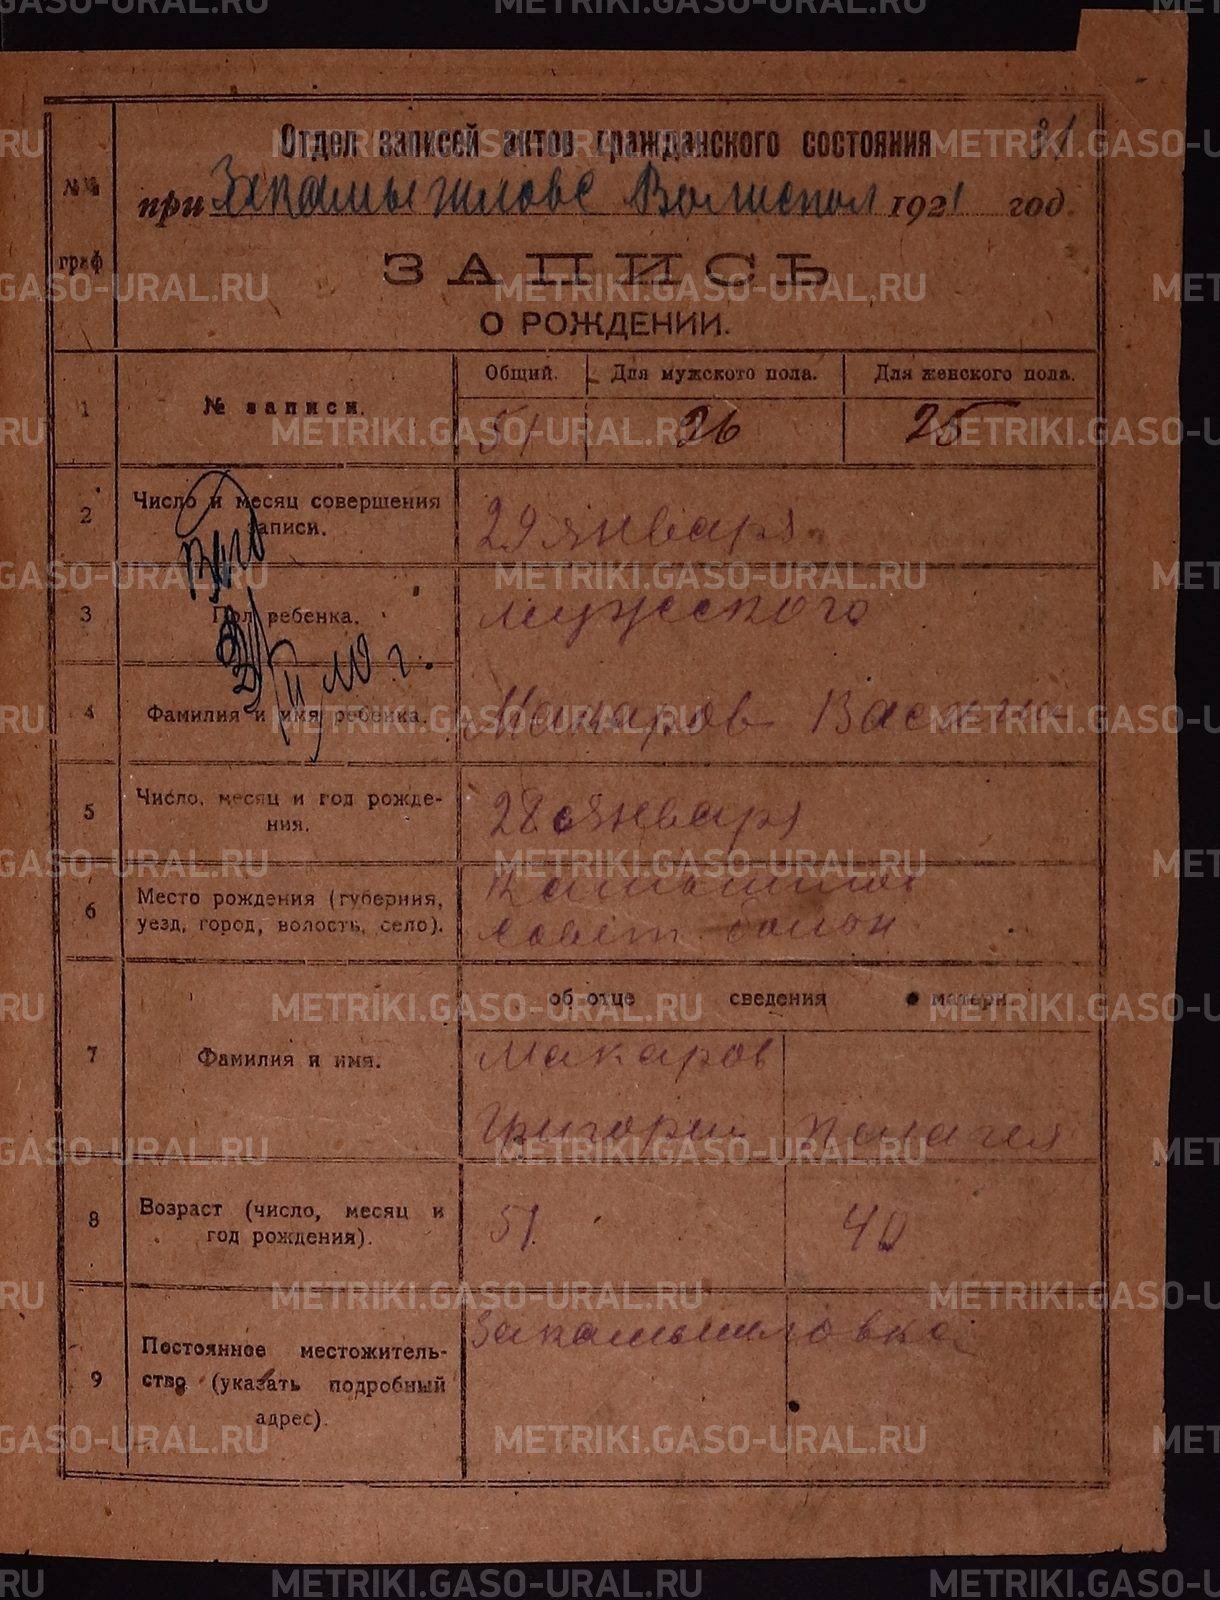 Отдел записей актов гражданского состояния 31
при Закамышловс Волиспол 1921 год.
№№ граф
ЗАПИСЬ
О РОЖДЕНИИ.
1 № записи.
Общий. Для мужского пола. Для женского пола.
51 26 25
2 Число и месяц совершения записи.
29 января
3 Пол ребенка.
мужского
4 Фамилия и имя ребенка.
Макаров
5 Число, месяц и год рождения.
28 января
6 Место рождения (губерния, уезд, город, волость, село).
Совет
об отце сведения о матери
7 Фамилия и имя.
Макаров
Григории Пелагея
8 Возраст (число, месяц и год рождения).
51. 40
9 Постоянное местожительство (указать подробный адрес).
Закамышловка
METRIKI.GASO-URAL.RU